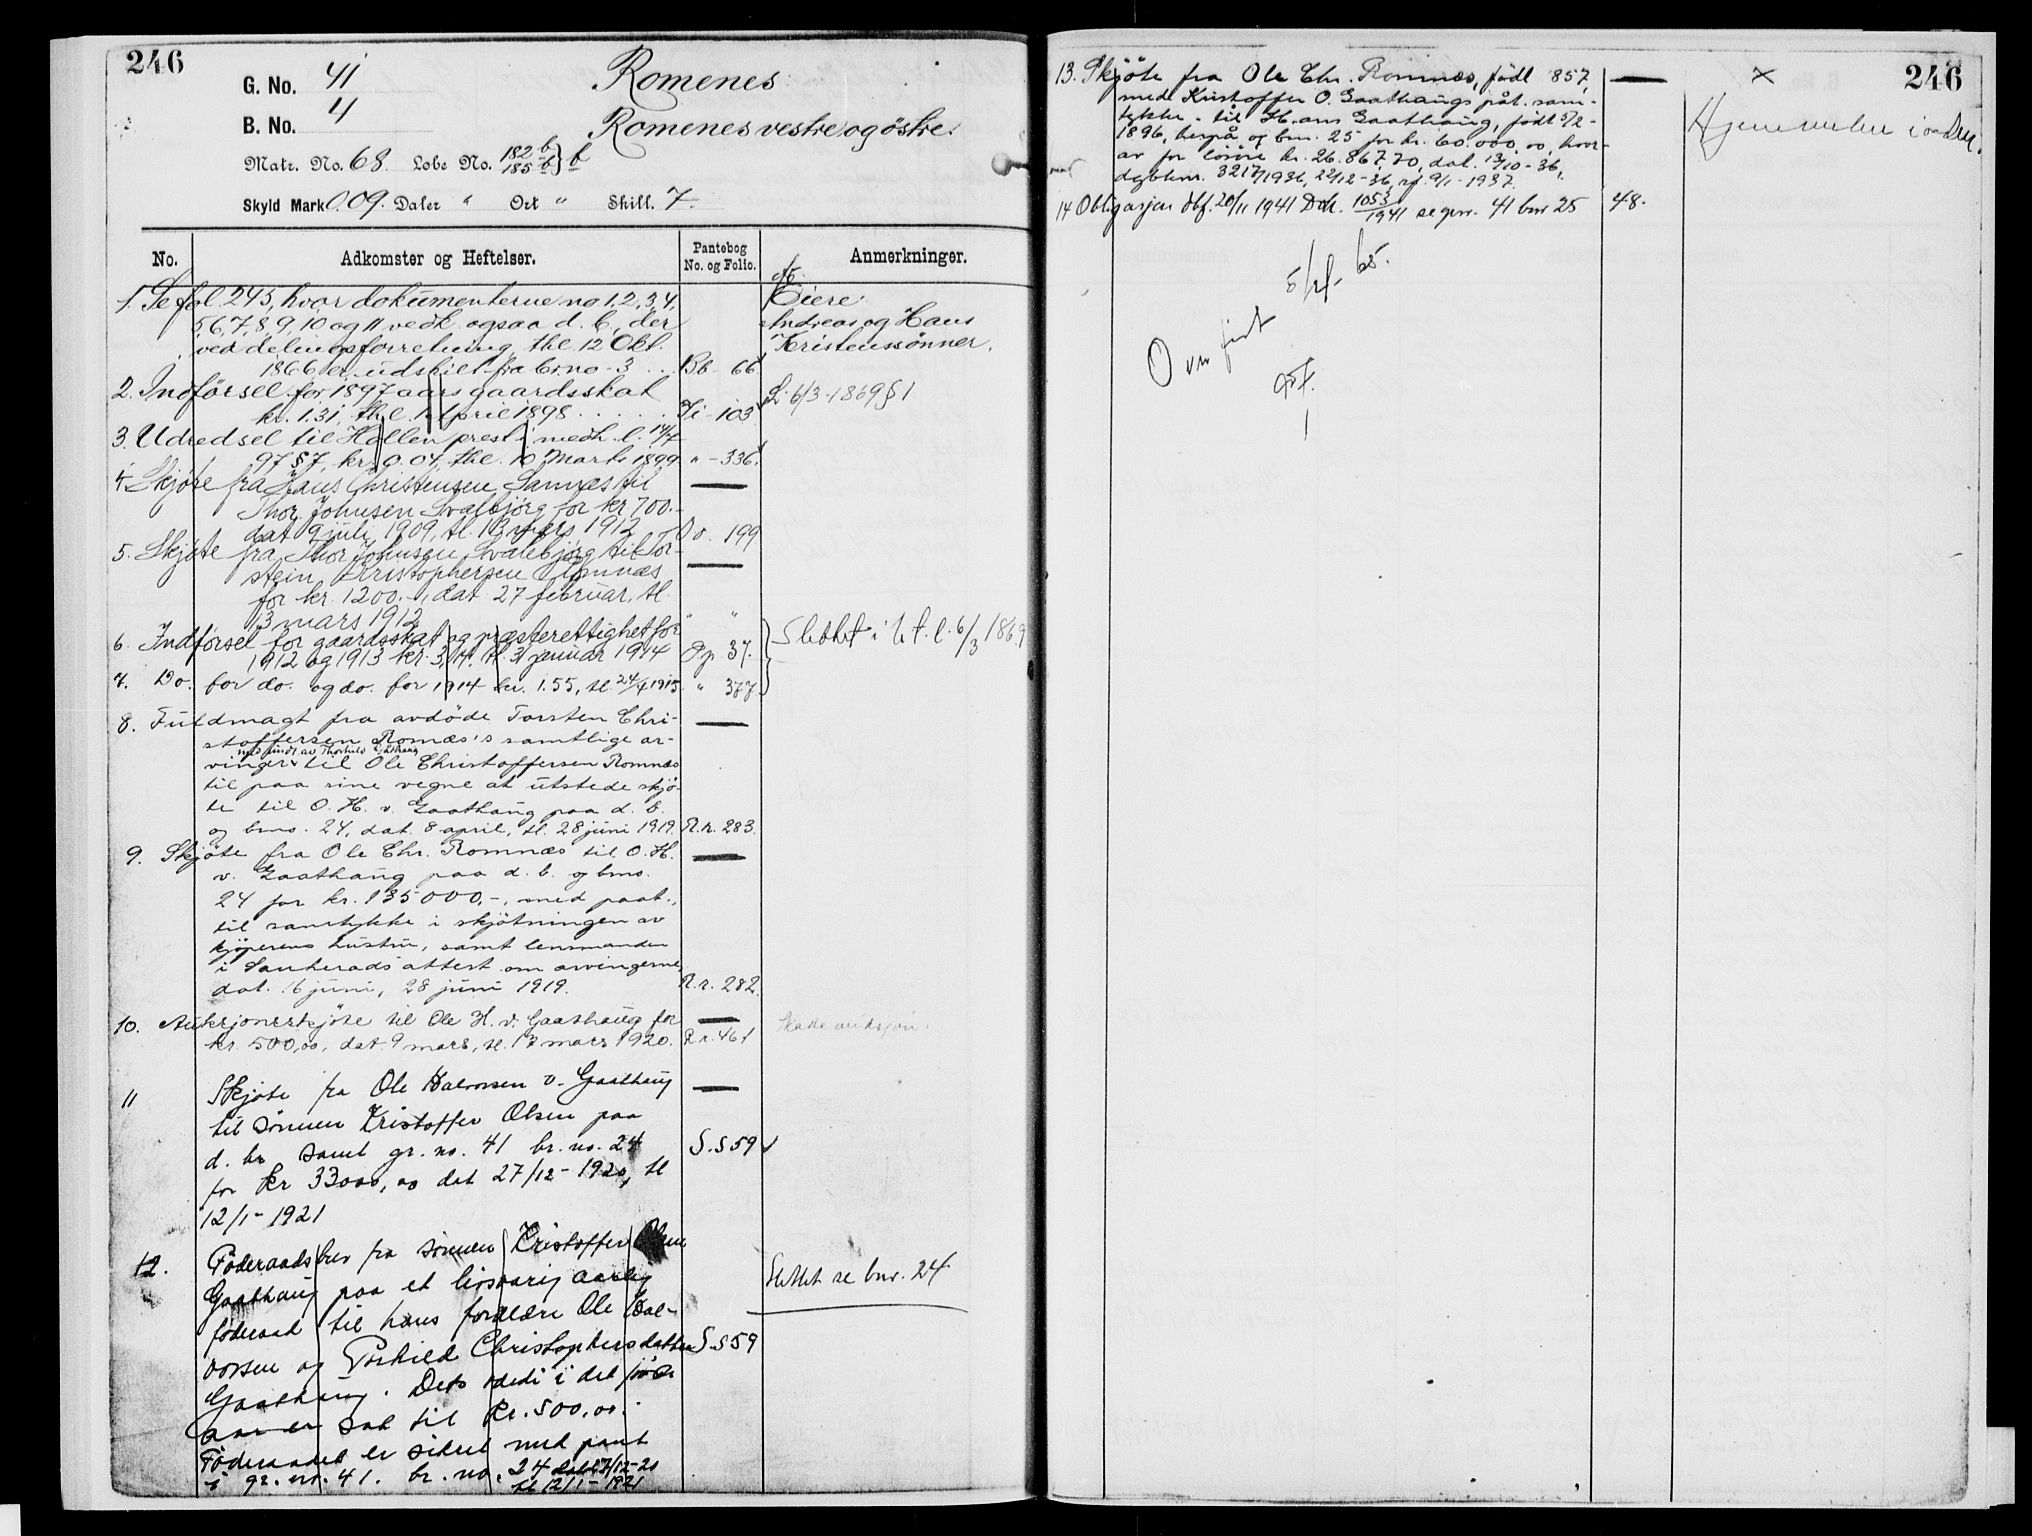 246
G. No. 41
Romenes
B. No. 4
Romenes vestre og östre.
Matr. No. 68. Løbe No. 182 b 185 b } b
Skyld Mark 0.09. Daler " Ort " Skill. 7.
No.
Adkomster og Heftelser.
Pantebog No. og Folio.
Anmerkninger.
1. Se fol 245, hvor dokumenterne no 1, 2, 3, 4,
5, 6, 7, 8, 9, 10 og 11 vedk. ogsaa d. b., der
ved delingsforretning, thl. 12 Okt.
1866 er udskilt fra br no 3 . . . Bb - 66
Eiere:
Andreas og Hans
Kristenssönner.
2. Indförsel for 1897 aars gaardsskat
kr. 1.31, thl. 1 April 1898 . . . . . Ji - 103
L. 6/3-1869 § 1
3. Udredsel til Hollen prest i medh. l. 14/7
97 § 7, kr. 0.04, thl. 10 Marts 1899 " - 336.
4. Skjöte fra Hans Christensen Samnæs til
Thor Johnsen Svalbjörg for kr 700.-
dat 9 juli 1909, tl. 13 mars 1912 Oo. 199
5. Skjöte fra Thor Johnsen Svalebjørg til Tor-
stein Kristophersen Romnæs
for kr. 1200.-, dat 27 februar, tl.
13 mars 1912 " "
6. Indförsel for gaardsskat og præsterettighet for
1912 og 1913 kr. 3,14. tl. 31 januar 1914 Pp. 37.
Slettet i h. t. l. 6/3 1869
7. Do. for do. og do. for 1914 kr. 1.55, tl. 24/4 1915. " 377
8. Fuldmagt fra avdöde Torsten Chri-
stoffersen Romnæs's samtlige ar-
med undt. av Thorhild Gåthaug
vinger til Ole Christoffersen Romnæs
til paa sine vegne at utstede skjö-
te til O. H. v. Gaathaug paa d. b.
og bno. 24, dat. 8 april, tl. 28 juni 1919. R.r. 283.
9. Skjöte fra Ole Chr. Romnæs til O. H.
v. Gaathaug paa d. b. og bno.
24 for kr. 135000,-, med paat.
til samtykke i skjötningen av
kjöperens hustru, samt lensmanden
i Sauherads attest om arvingerne,
dat. 16 juni, 28 juni 1919. R.r. 282.
10. Auksjonsskjöte til Ole H. v. Gaathaug for
kr. 500,00, dat. 9 mars, tl. 17 mars 1920. R.r. 461
Skatte auksjon.
11 Skjöte fra Ole Halvorsen v. Gaathaug
til sönnen Kristoffer Olsen paa
d. br samt gr. no. 41 br. no. 24 S.s 59
for kr 33000,00 dat 27/12 - 1920, tl
12/1 - 1921
12. Föderaadsbrev fra sönnen Kristoffer Olsen
Gaathaug paa et livsvarig aarlig
föderaad til hans forældre Ole Hal-
vorsen og Torhild Christophersdatter S.s 59
Gaathaug. Dets værdi i det
aar er sat til kr. 500,00.
Föderaadet er sikret med pant
i gr. no. 41. br. no. 24 dat 27/12-20
tl 12/1 - 1921
Slettet se bnr. 24
246
13. Skjöte fra Ole Chr. Romnæs, född 1857,
med Kristoffer O. Gaathaugs påt. sam-
tykke - til Hans Gaathaug, født 5/2 -
1896, herpå og bnr. 25 for kr. 60.000,00, hvor-
av for lösöre kr. 26.867,70, dat. 13/10 - 36,
dgbknr. 3217/1936, 22/12 - 36, rf. 9/1 - 1937.
x
Hjemmelen i orden.
14 Obligasjon dbf. 20/11 1941 Dok. 1053/1941 se gnr. 41 bnr 25 48.
Overfört
65.